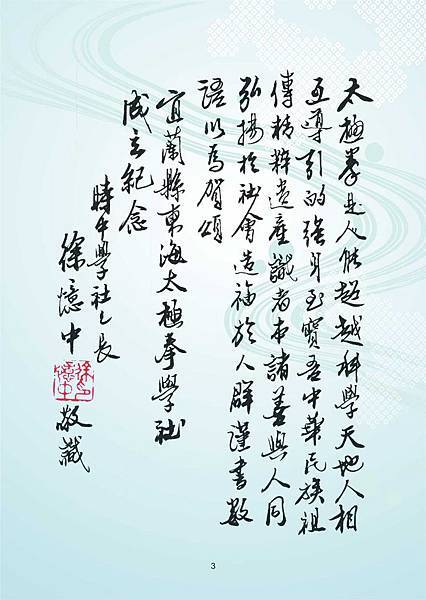 太極拳是人能超越科學天地人相
互導引的強身至寶吾中華民族祖
傳精粹遺產識者本諸善與人同
弘揚於社會造福於人群謹書數
語以為賀頌
宜蘭縣東海太極拳學社
成立紀念
時中學社々長
徐憶中 敬
3